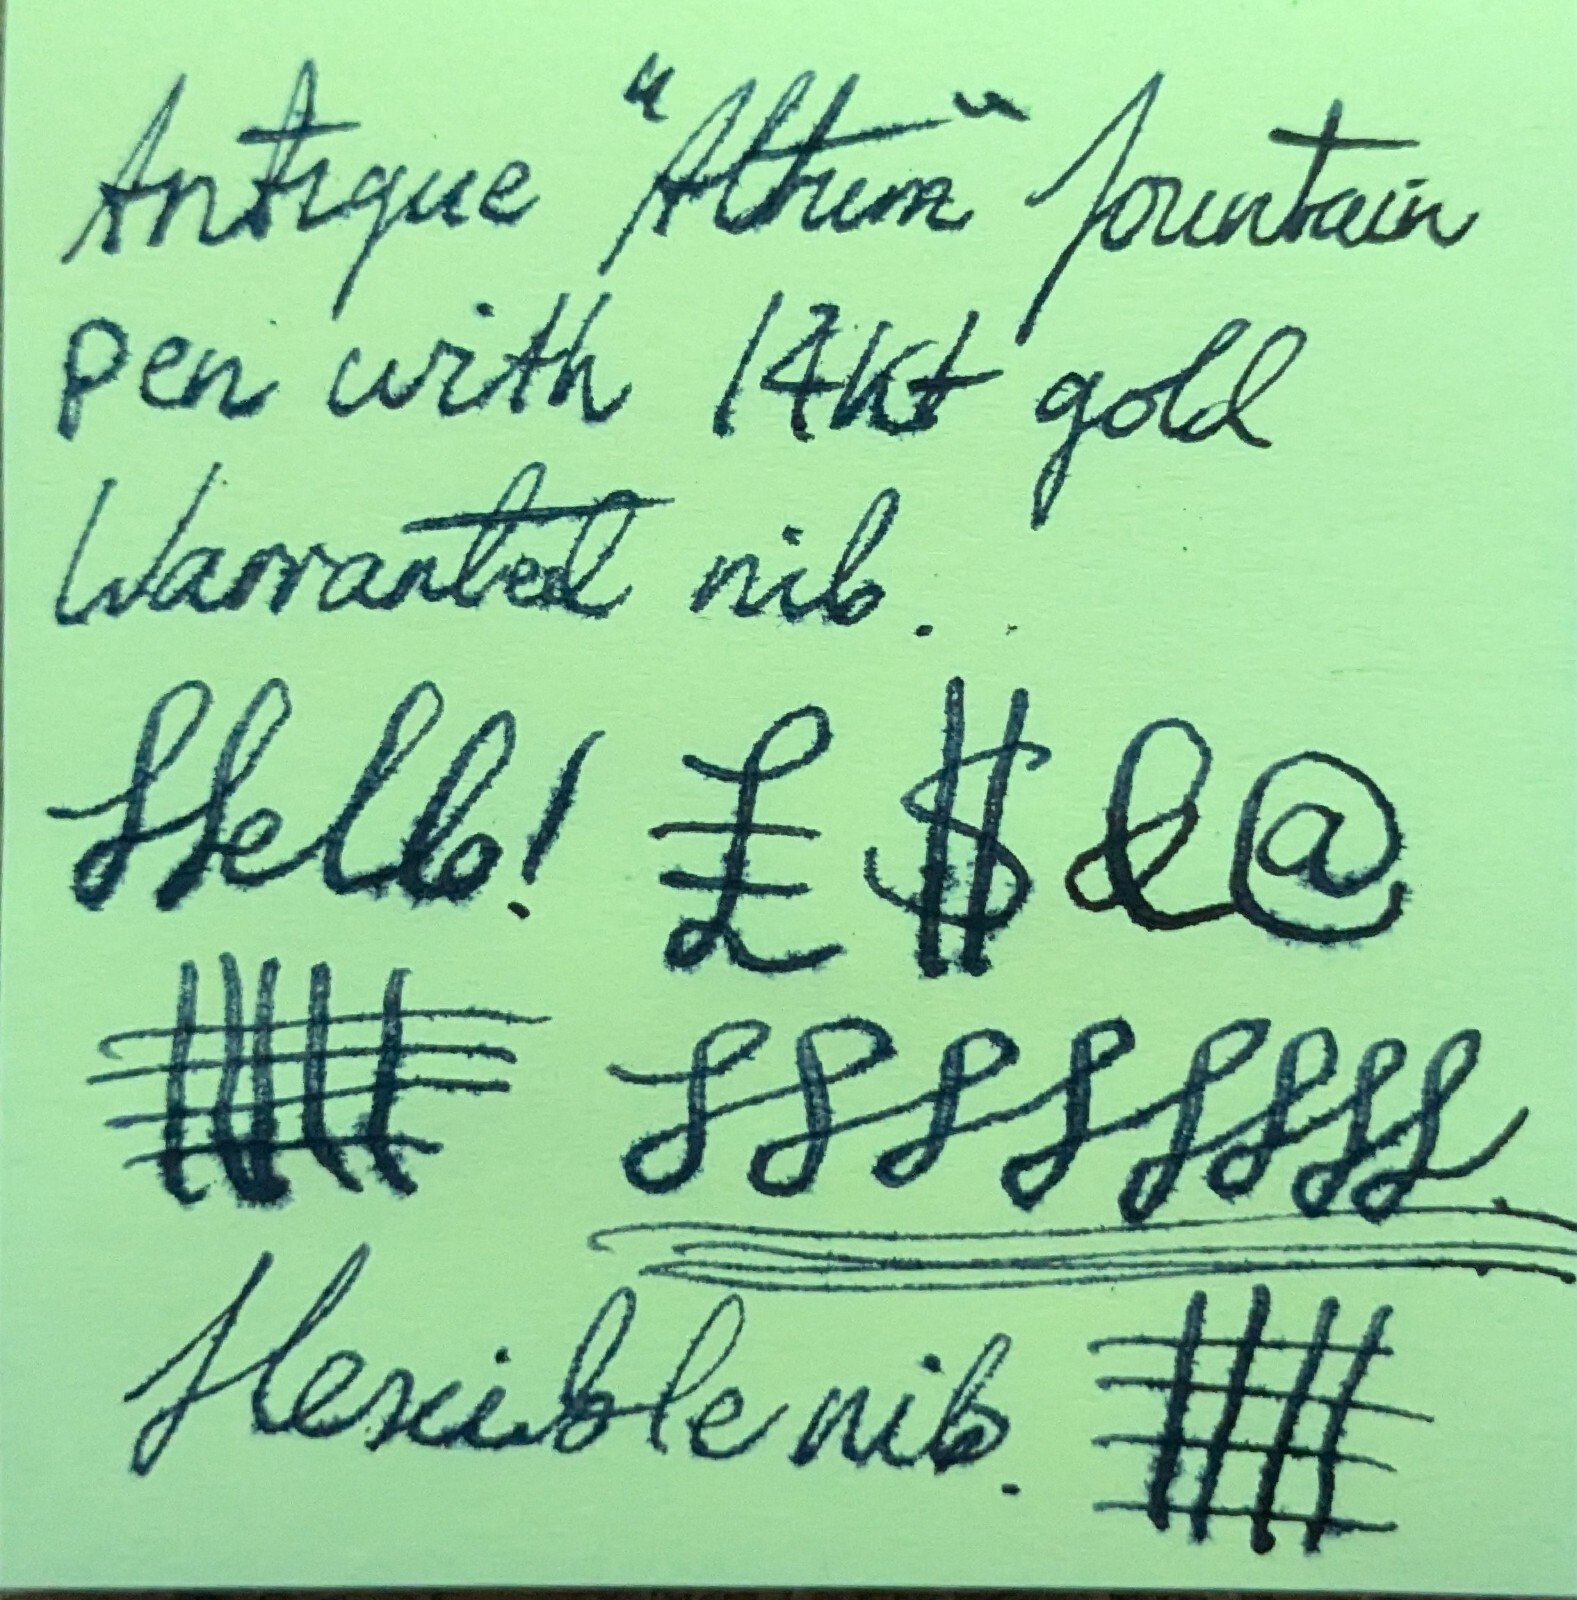 Antique "Altura" fountain
pen with 14kt gold
Warranted nib.
Hello! £ $ & @
flexible nib.